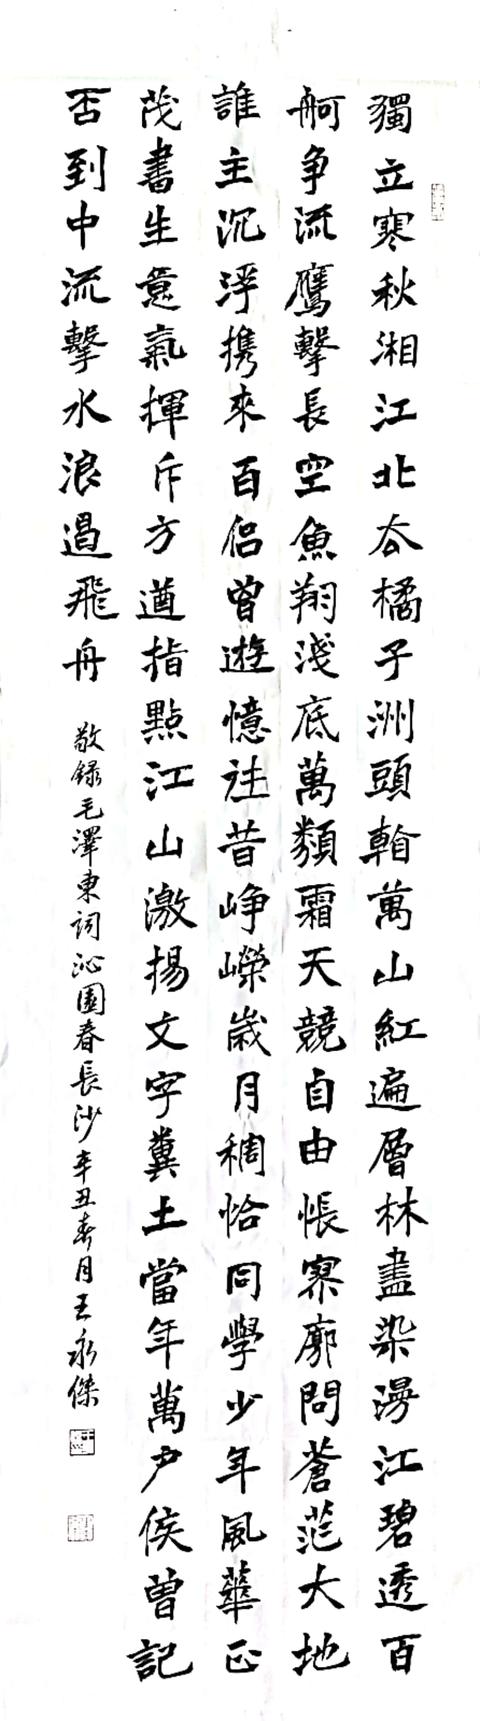 獨立寒秋湘江北去橘子洲頭看萬山紅遍層林盡染漫江碧透百
舸争流鷹擊長空魚翔淺底萬類霜天競自由悵寥廓問蒼茫大地
誰主沉浮携來百侣曾遊憶往昔崢嶸歲月稠恰同學少年風華正
茂書生意氣揮斥方遒指點江山激揚文字糞土當年萬户侯曾記
否到中流擊水浪遏飛舟
敬録毛澤東詞沁園春長沙辛丑春月王永傑